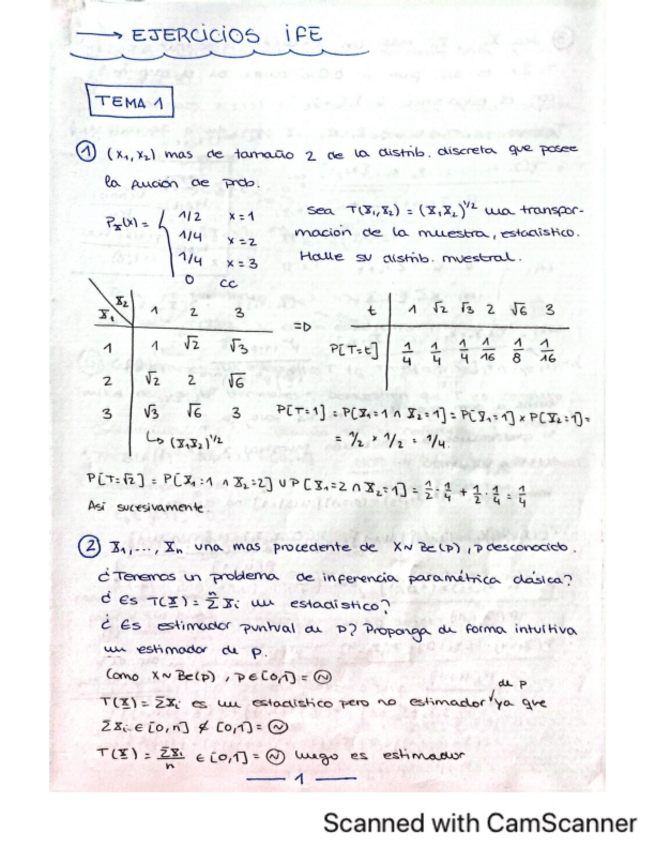 → EJERCICIOS IFE
TEMA 1
① (X₁,X₂) mas de tamaño 2 de la distrib. discreta que posee
la función de prob.
Px(x) = { 1/2 x=1
1/4 x=2
1/4 x=3
0 cc
Sea T(X₁,X₂) = (X₁X₂)^1/2 una transfor-
mación de la muestra, estadístico.
Halle su distrib. muestral.
X₁ \ X₂ | 1 2 3
1 | 1 √2 √3
2 | √2 2 √6
3 | √3 √6 3
↳ (X₁X₂)^1/2
=D
t | 1 √2 √3 2 √6 3
P[T=t] | 1/4 1/4 1/4 1/16 1/8 1/16
P[T=1] = P[X₁=1 ∩ X₂=1] = P[X₁=1] × P[X₂=1] =
= 1/2 × 1/2 = 1/4.
P[T=√2] = P[X₁=1 ∩ X₂=2] ∪ P[X₁=2 ∩ X₂=1] = 1/2 · 1/4 + 1/2 · 1/4 = 1/4
Así sucesivamente.
② X₁,..., Xn una mas procedente de X~Be(p), p desconocido.
¿Tenemos un problema de inferencia paramétrica clásica?
¿Es T(X) = Σⁿ Xi un estadístico?
¿Es estimador puntual de p? Proponga de forma intuitiva
un estimador de p.
Como X~Be(p), p∈[0,1] = Ⓝ
T(X) = ΣXi es un estadístico pero no estimador de p ya que
ΣXi ∈ [0,n] ⊄ [0,1] = Ⓝ
T(X) = ΣXi/n ∈ [0,1] = Ⓝ luego es estimador
— 1 —
Scanned with CamScanner